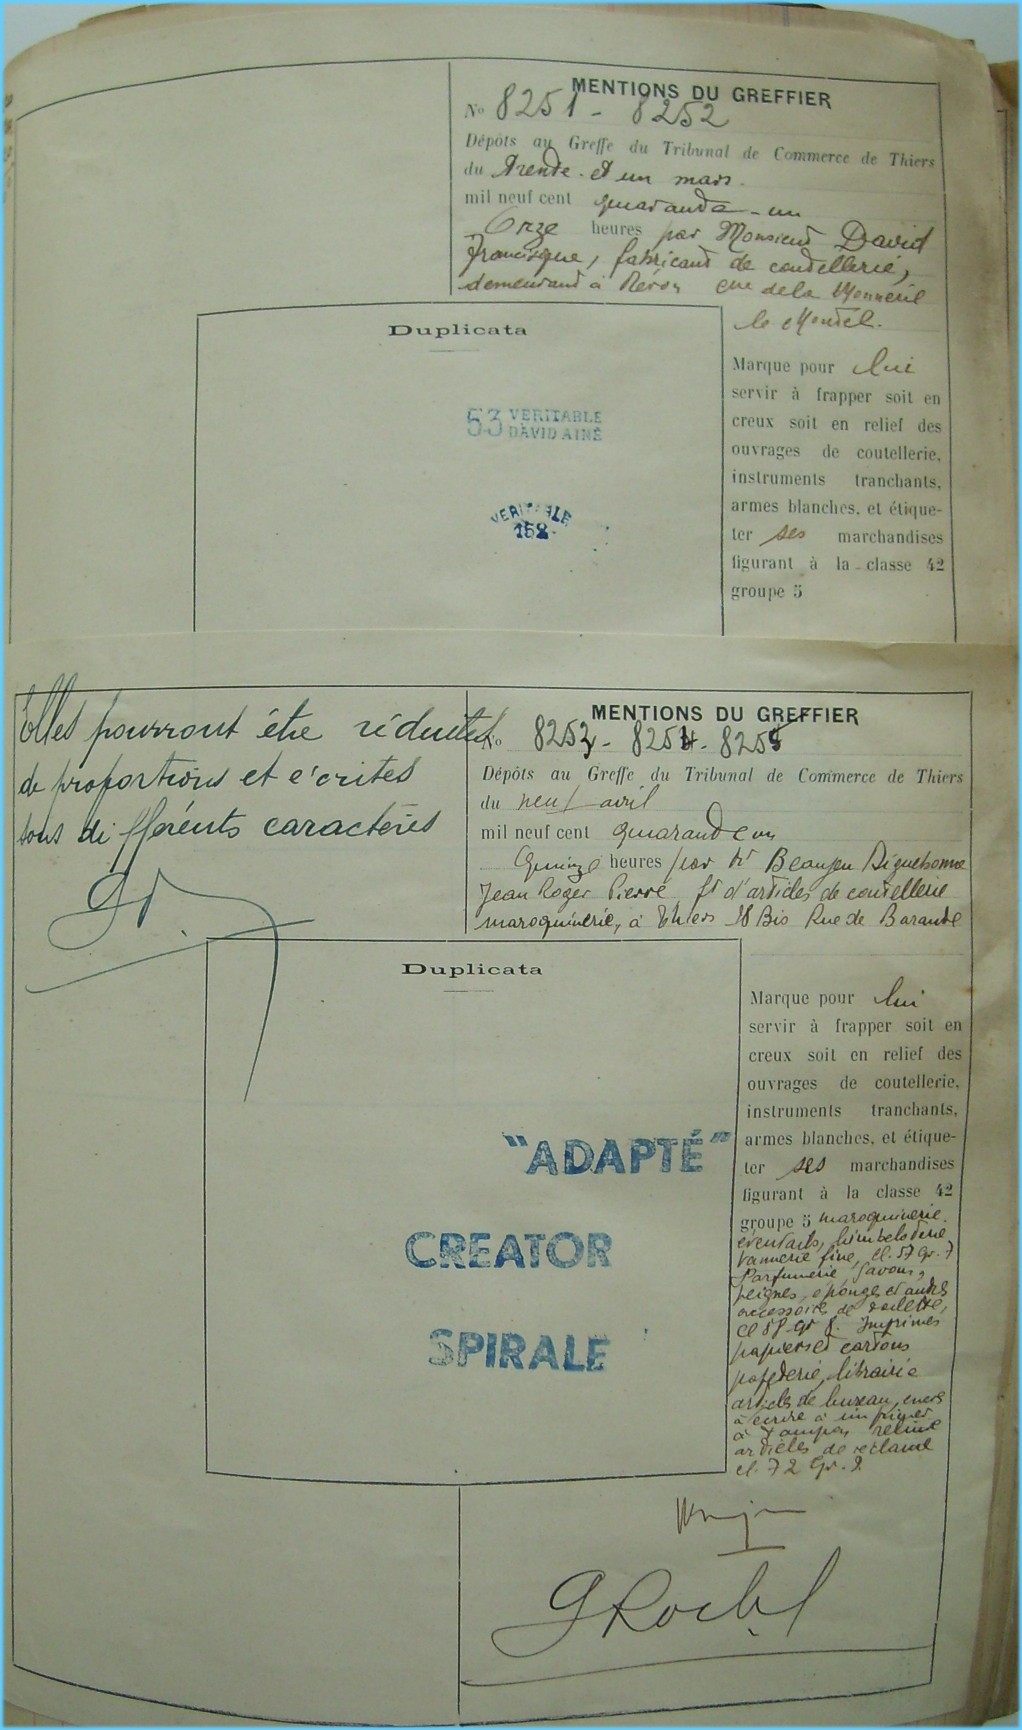 MENTIONS DU GREFFIER
No 8251 - 8252
Dépôts au Greffe du Tribunal de Commerce de Thiers
du trente et un mars
mil neuf cent quarante-un
Onze heures par Monsieur David
Francisque, fabricant de coutellerie,
demeurant à de la Monnerie
le Montel.
Duplicata
53 VERITABLE
DAVID AINÉ
VERITABLE
158
Marque pour lui
servir à frapper soit en
creux soit en relief des
ouvrages de coutellerie,
instruments tranchants,
armes blanches, et étique-
ter ses marchandises
figurant à la classe 42
groupe 5
Elles pourront être réduites
de proportions et écrites
sous différents caractères
MENTIONS DU GREFFIER
No 8253 - 8254 - 8255
Dépôts au Greffe du Tribunal de Commerce de Thiers
du neuf avril
mil neuf cent quarante un
Quinze heures par Mr Beaujeu Diguebonne
Jean Roger Pierre ft d'articles de coutellerie
maroquinerie, à Thiers 18 Bis Rue de Barante
Duplicata
"ADAPTÉ"
CREATOR
SPIRALE
Marque pour lui
servir à frapper soit en
creux soit en relief des
ouvrages de coutellerie,
instruments tranchants,
armes blanches, et étique-
ter ses marchandises
figurant à la classe 42
groupe 5 maroquinerie
éventails, bimbeloterie
vannerie fine, cl. 57 gr. 7
Parfumerie, savons,
peignes, éponges et autres
accessoires de toilette,
cl 58 gr 8. Imprimés
papiers et cartons
papeterie, librairie
articles de bureau, encres
à écrire à imprimer
à tampon reliure
articles de réclame
cl. 72 Gr. 9